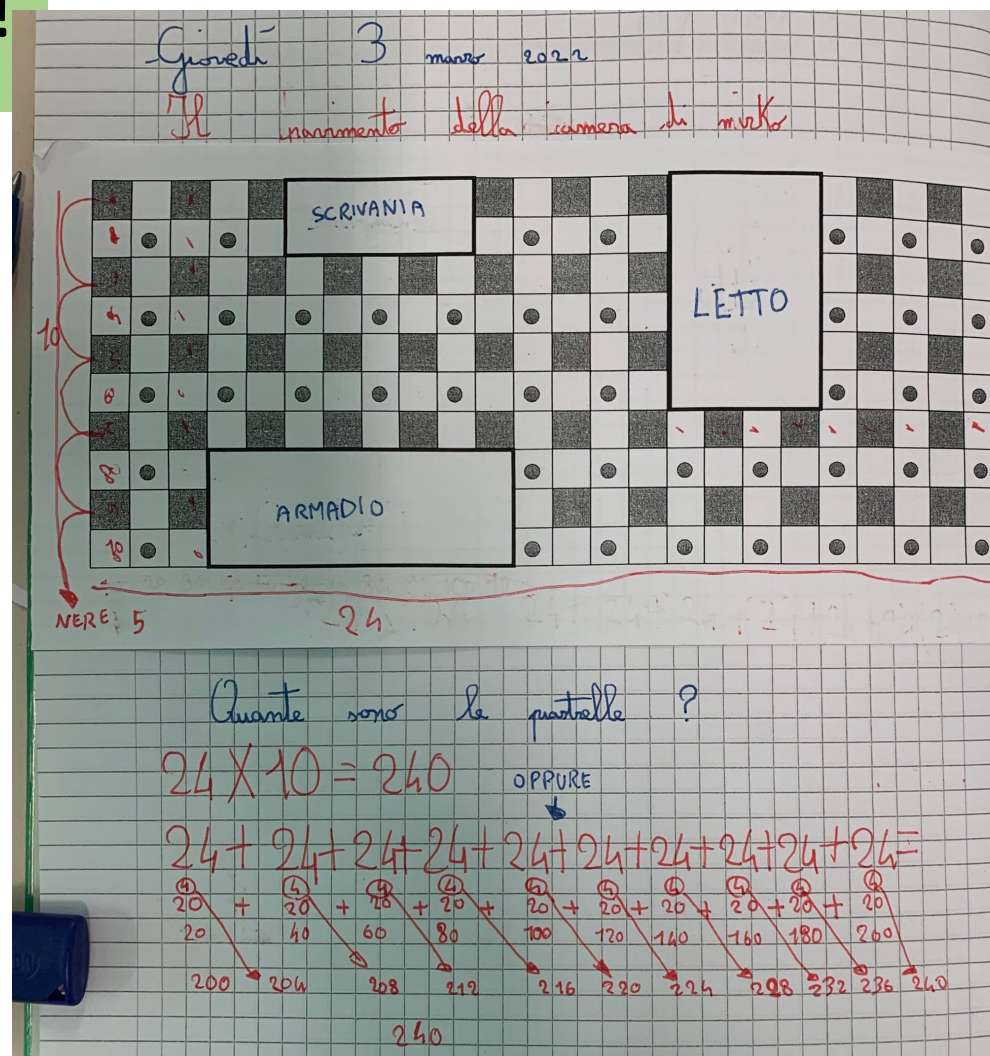 !
Giovedì 3 marzo 2022
Il pavimento della camera di mirko
SCRIVANIA
LETTO
10
ARMADIO
4
5
6
8
9
10
NERE: 5
24
Quante sono le piastrelle ?
24 X 10 = 240
OPPURE
24 + 24 + 24 + 24 + 24 + 24 + 24 + 24 + 24 + 24 =
4 4 4 4 4 4 4 4 4 4
20 + 20 + 20 + 20 + 20 + 20 + 20 + 20 + 20 + 20
20 40 60 80 100 120 140 160 180 200
200 204 208 212 216 220 224 228 232 236 240
240